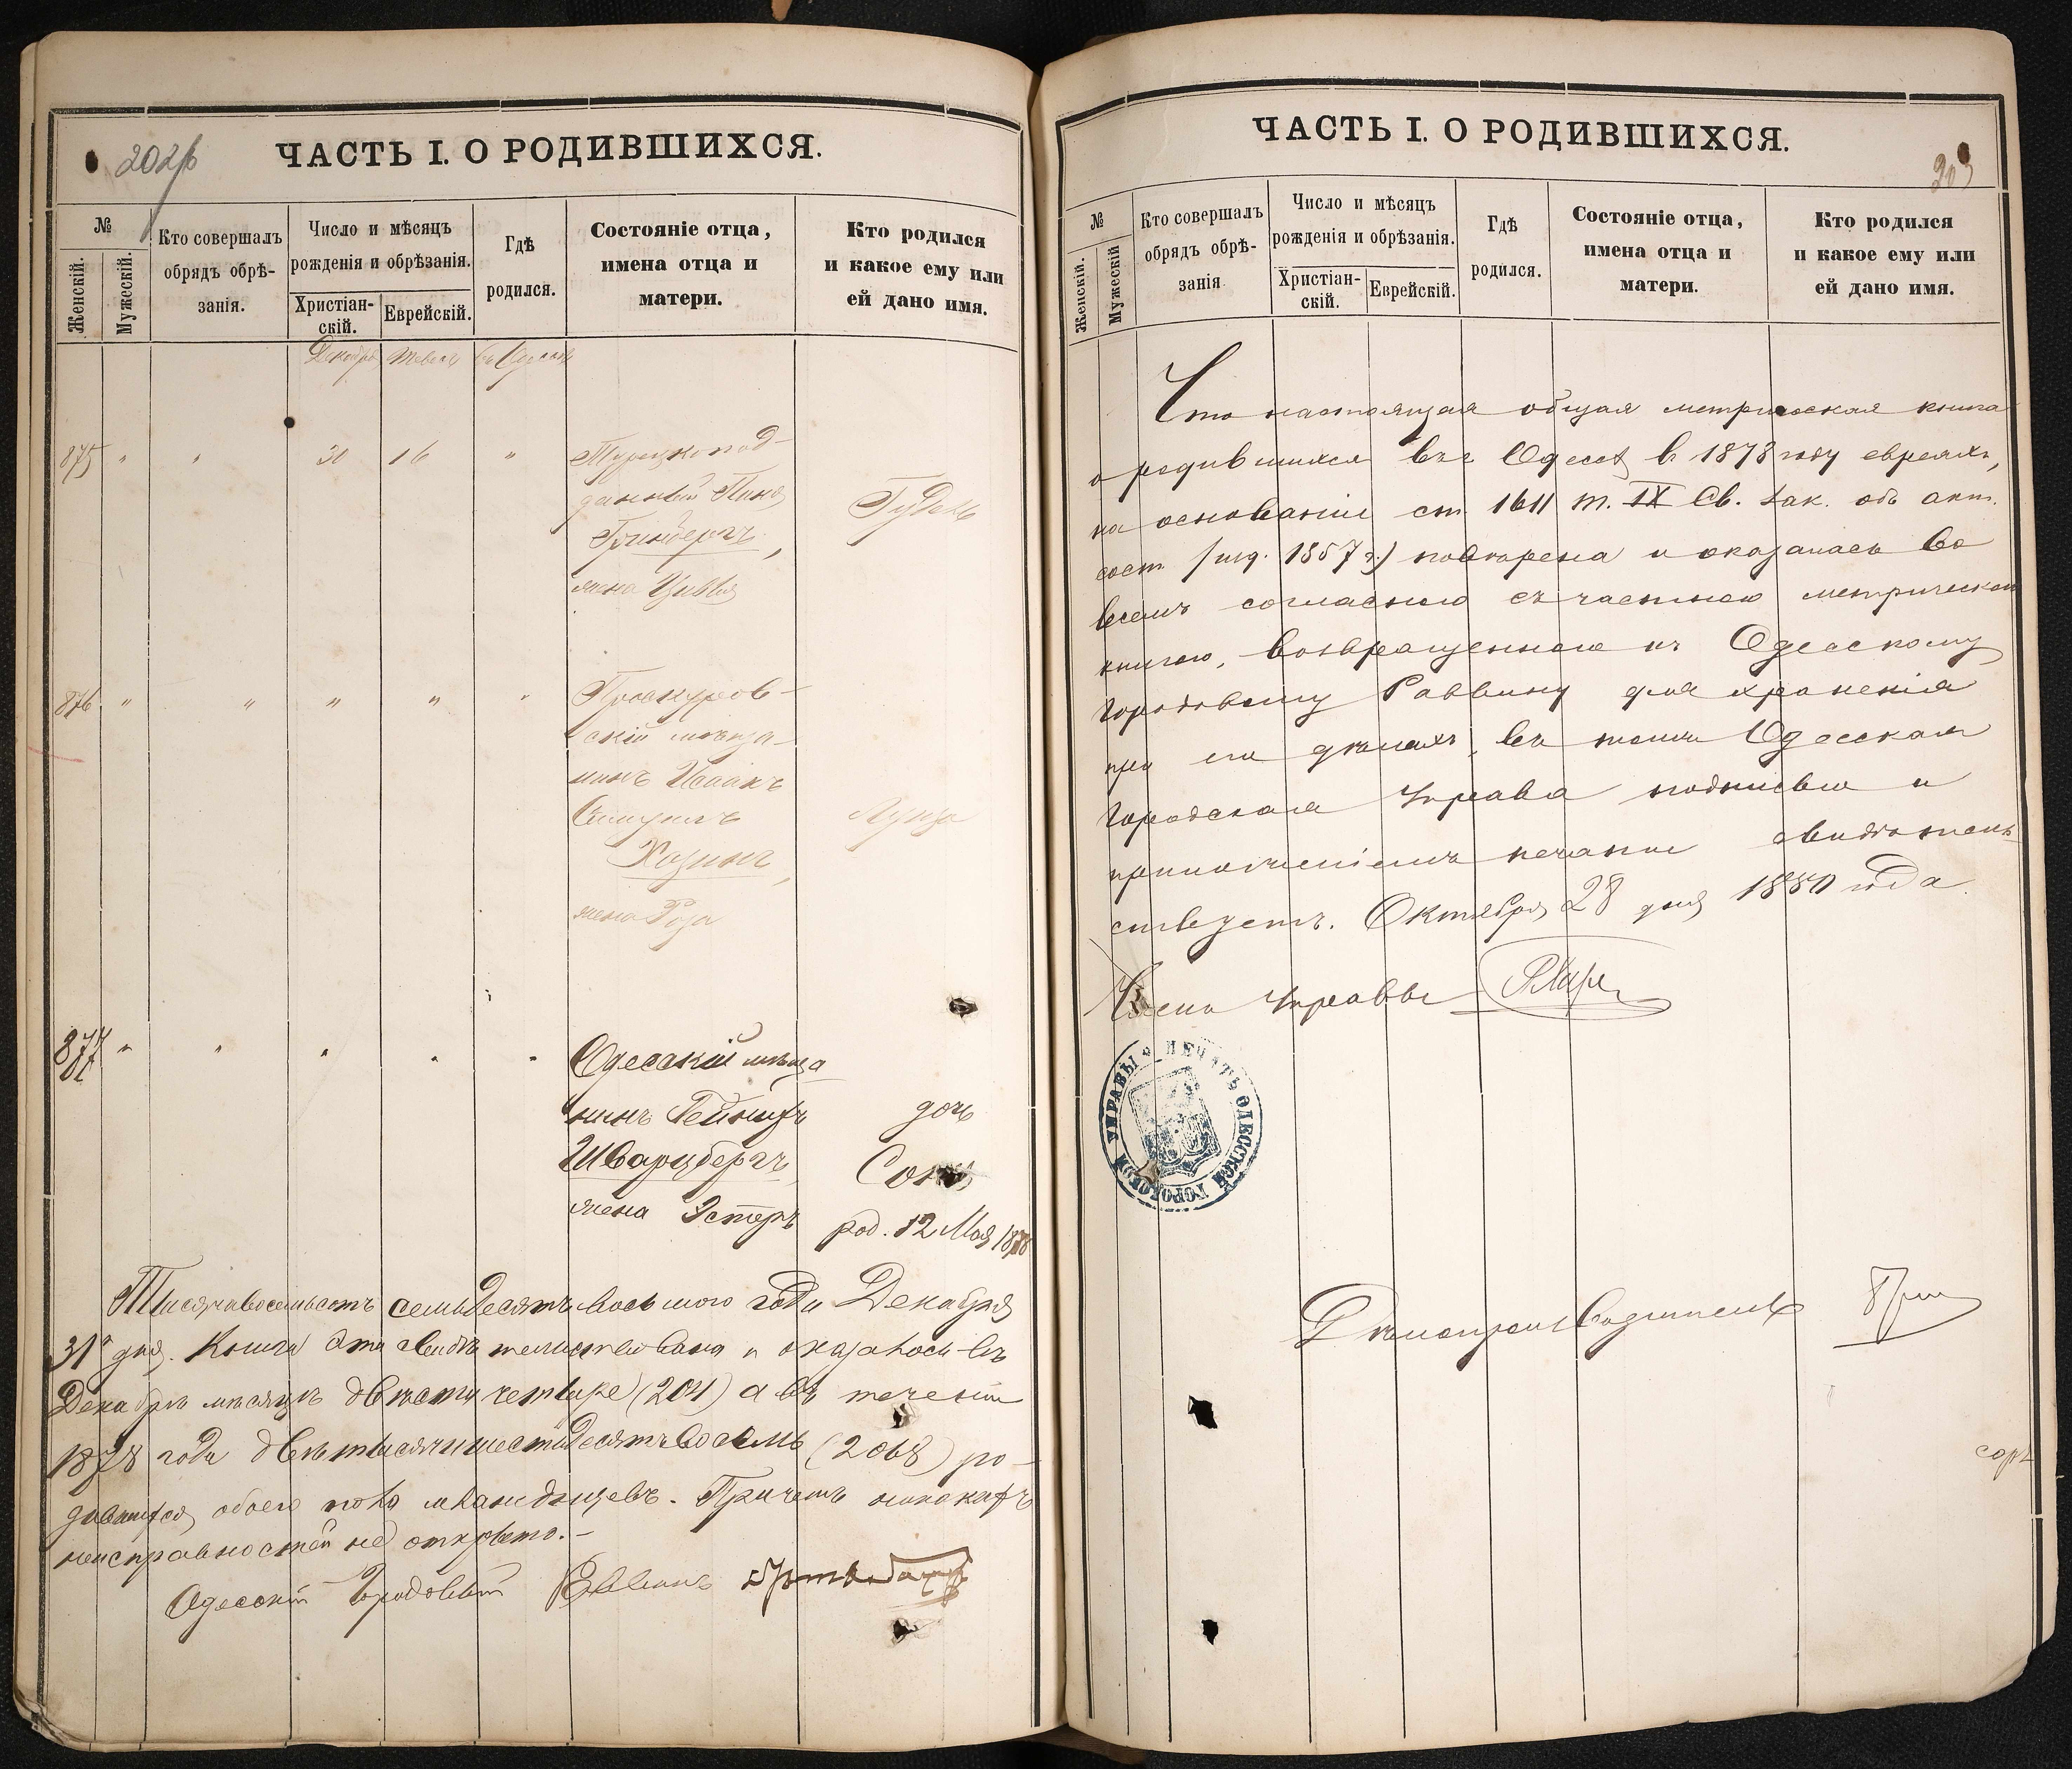 202
ЧАСТЬ I. О РОДИВШИХСЯ.
№
Женскій.
Мужескій.
Кто совершалъ
обрядъ обрѣ-
занія.
Число и мѣсяцъ
рожденія и обрѣзанія.
Христіан-
скій.
Еврейскій.
Гдѣ
родился.
Состояніе отца,
имена отца и
матери.
Кто родился
и какое ему или
ей дано имя.
Декабрь
875 " " 30 16 "
Турецкопод-
данный
Гринбергъ,
жена Цивья
Гудель
876 " " " " "
Проскуров-
скій мѣща-
нинъ Исаакъ
Самуилъ
Хазинъ,
жена Роза
Луиза
877 " " " " "
Одесскій мѣща
нинъ Гейнихъ
Шварцбергъ,
жена Эстеръ
дочь
род. 12 Мая 1878
Тысячавосемьсотъ семьдесятъ восьмого года Декабря
31го дня. Книга эта свидѣтельствована и оказалось въ
Декабрѣ мѣсяцѣ двѣсти четыре (204) а въ теченіи
1878 года двѣ тысячи шестьдесятъ восемь (2068) ро-
дившихся обоего пола младенцевъ. Причемъ никакихъ
неисправностей не открыто.-
Одесскій Городовой Раввинъ
203
ЧАСТЬ I. О РОДИВШИХСЯ.
№
Женскій.
Мужескій
Кто совершалъ
обрядъ обрѣ-
занія
Число и мѣсяцъ
рожденія и обрѣзанія.
Христіан-
скій.
Еврейскій.
Гдѣ
родился.
Состояніе отца,
имена отца и
матери.
Кто родился
и какое ему или
ей дано имя.
Что настоящая общая метрическая книга
о родившихся въ г Одессѣ въ 1878 году евреяхъ,
на основаніи ст 1611 т. IX Св. Зак. объ акт.
сост (изд. 1857 г.) повѣрена и оказалась во
всемъ согласною съ частною метрическою
книгою, возвращенною къ Одесскому
Городовому Раввину для храненія
при его дѣлахъ, въ томъ Одесская
Городская Управа подписью и
приложеніемъ печати свидѣтель-
ствуетъ. Октября 28 дня 1880 года
Членъ Управы
ПЕЧАТЬ ОДЕССКОЙ ГОРОДСКОЙ УПРАВЫ
Дѣлопроизводитель